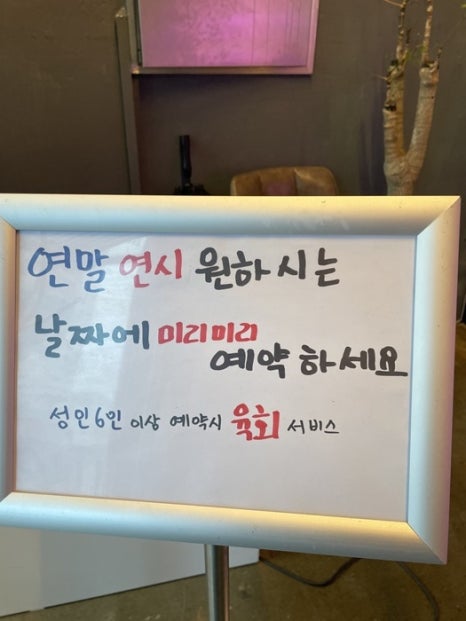 연말 연시 원하시는
날짜에 미리미리
예약하세요
성인 6인 이상 예약시 육회 서비스